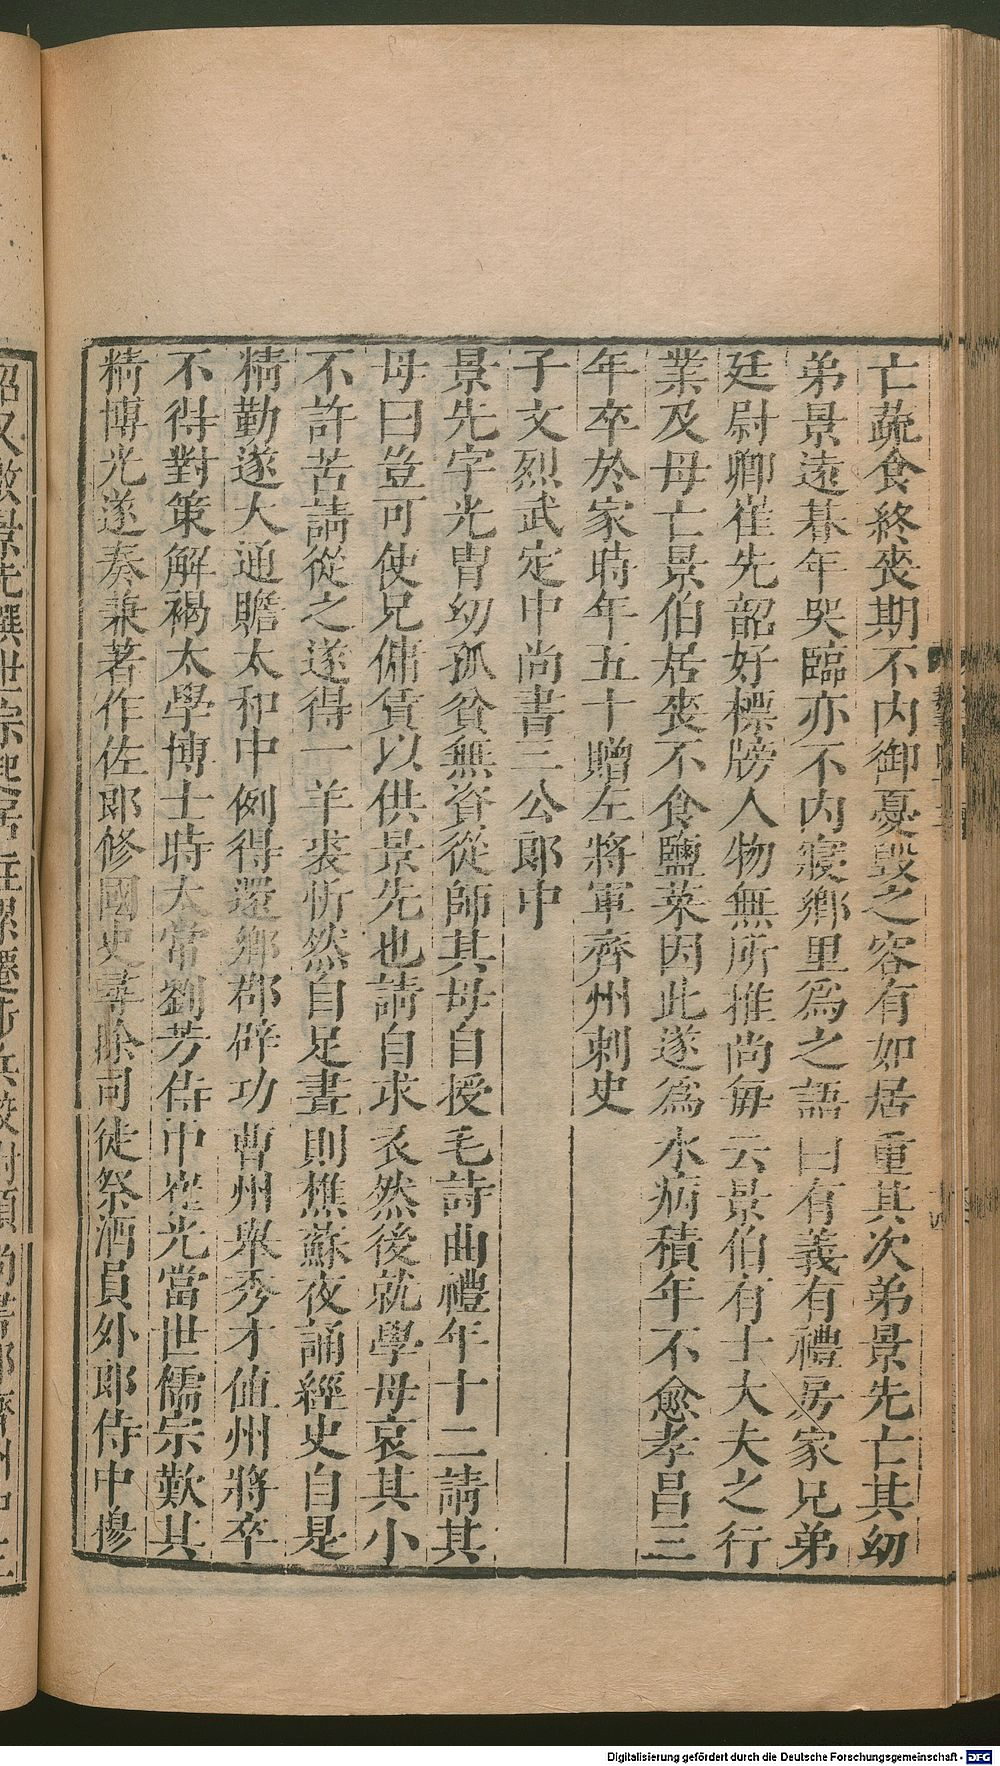 亡蔬食終喪期不内御憂毁之容有如居重其次弟景先亡其幼
弟景遠朞年哭臨亦不内寢鄉里爲之語曰有義有禮房家兄弟
廷尉卿崔光韶好標牓人物無所推尚每云景伯有士大夫之行
業及母亡景伯居喪不食鹽菜因此遂爲水病積年不愈孝昌三
年卒於家時年五十贈左將軍齊州刺史
子文烈武定中尚書三公郎中
景先字光冑幼孤貧無資從師其母自授毛詩曲禮年十二請其
母曰豈可使兄傭賃以供景先也請自求衣然後就學母哀其小
不許苦請從之遂得一羊裘忻然自足晝則樵蘇夜誦經史自是
精勤遂大通贍太和中例得還鄉郡辟功曹州舉秀才值州將卒
不得對策解褐太學博士時太常劉芳侍中崔光當世儒宗歎其
精博光遂奏兼著作佐郎修國史尋除司徒祭酒員外郎侍中穆
Digitalisierung gefördert durch die Deutsche Forschungsgemeinschaft - DFG